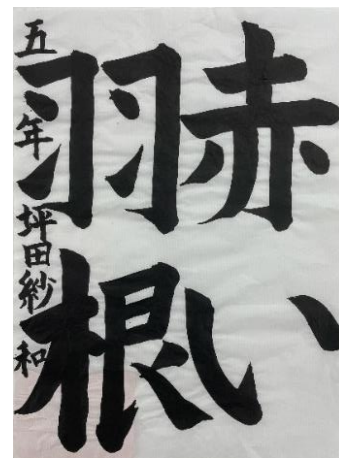 赤い
羽根
五年 坪田紗和